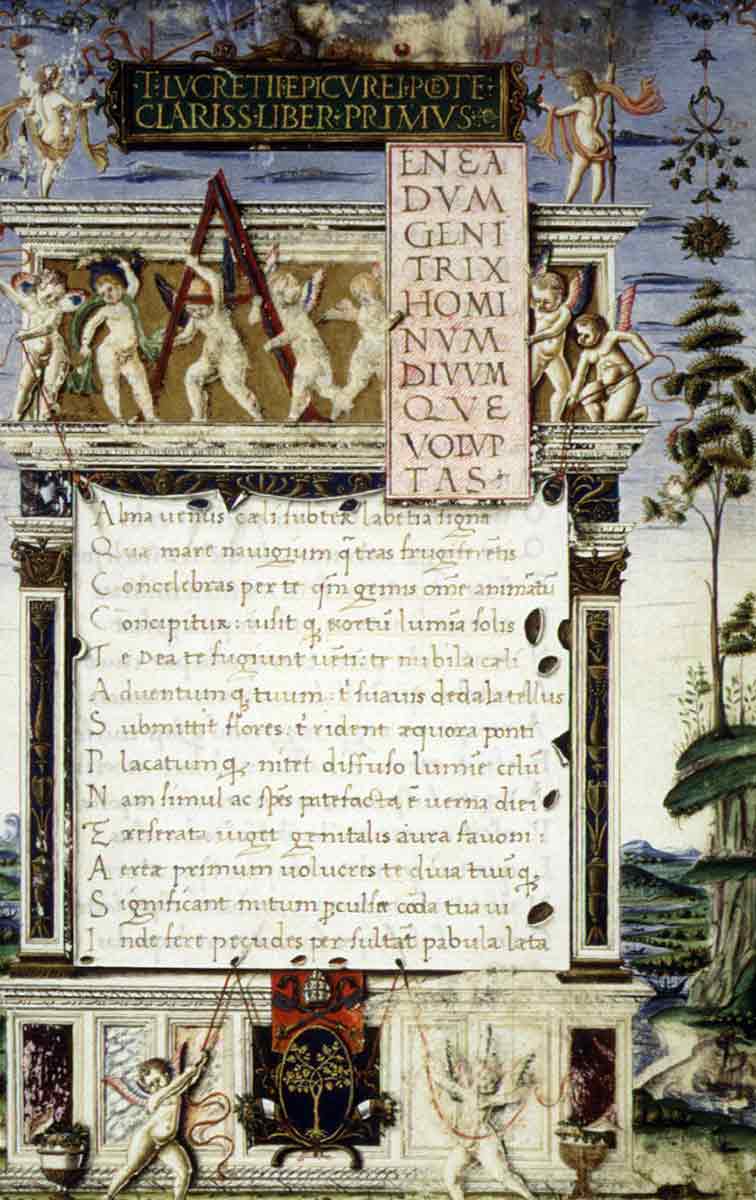 ·T·LVCRETII·EPICVREI·POETE·
CLARISS·LIBER·PRIMVS·
A
ENEA
DVM
GENI
TRIX
HOMI
NVM
DIVVM
QVE
VOLVP
TAS
Alma uenus cæli subter labẽtia signa
Quæ mare nauigium q̃ tras frugiferẽtis
Concelebras per te qm̃ genus om̃e animãtũ
Concipitur: uisit q exortũ lumĩa solis
Te Dea te fugiunt uẽti: te nubila cæli
Aduentumq tuum: t̃ suauis dedala tellus
Submittit flores: t̃ rident æquora ponti
Placatumq nitet diffuso lumĩe celũ
Nam simul ac spẽs patefacta ẽ uerna diei
Et reserata uiget genitalis aura fauoni:
Aereæ primum uolucres te diua tuũq
Significant initum perculsæ corda tua ui
Inde fere pecudes per sultãt pabula læta